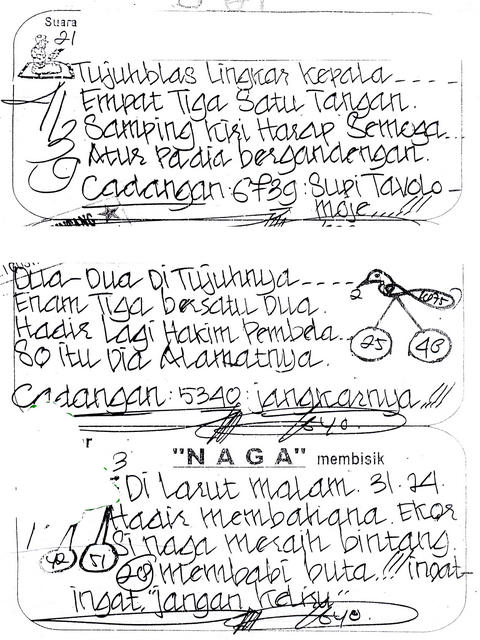 Suara
21
Tujuhblas Lingkar kepala ----
Empat Tiga Satu Tangan.
Samping kiri Harap Semoga...
Atur padia bergandengan.
Cadangan: 6739: Supi Tavolo-
moje....!!!
Dua-Dua Di Tujuhnya -----
Enam Tiga bersatu Dua.
Hadir Lagi Hakim Pembela..
80 itu Dia Alamatnya.
2
25 48
Cadangan: 5340: jangkarnya..!!!
640.
3 "NAGA" membisik
Di Larut malam. 31.24.
Hadir membahana. Ekor
Si naga meraih bintang
42 51
20 membabi buta..!!! ingat-
ingat, "jangan keliru"
640.